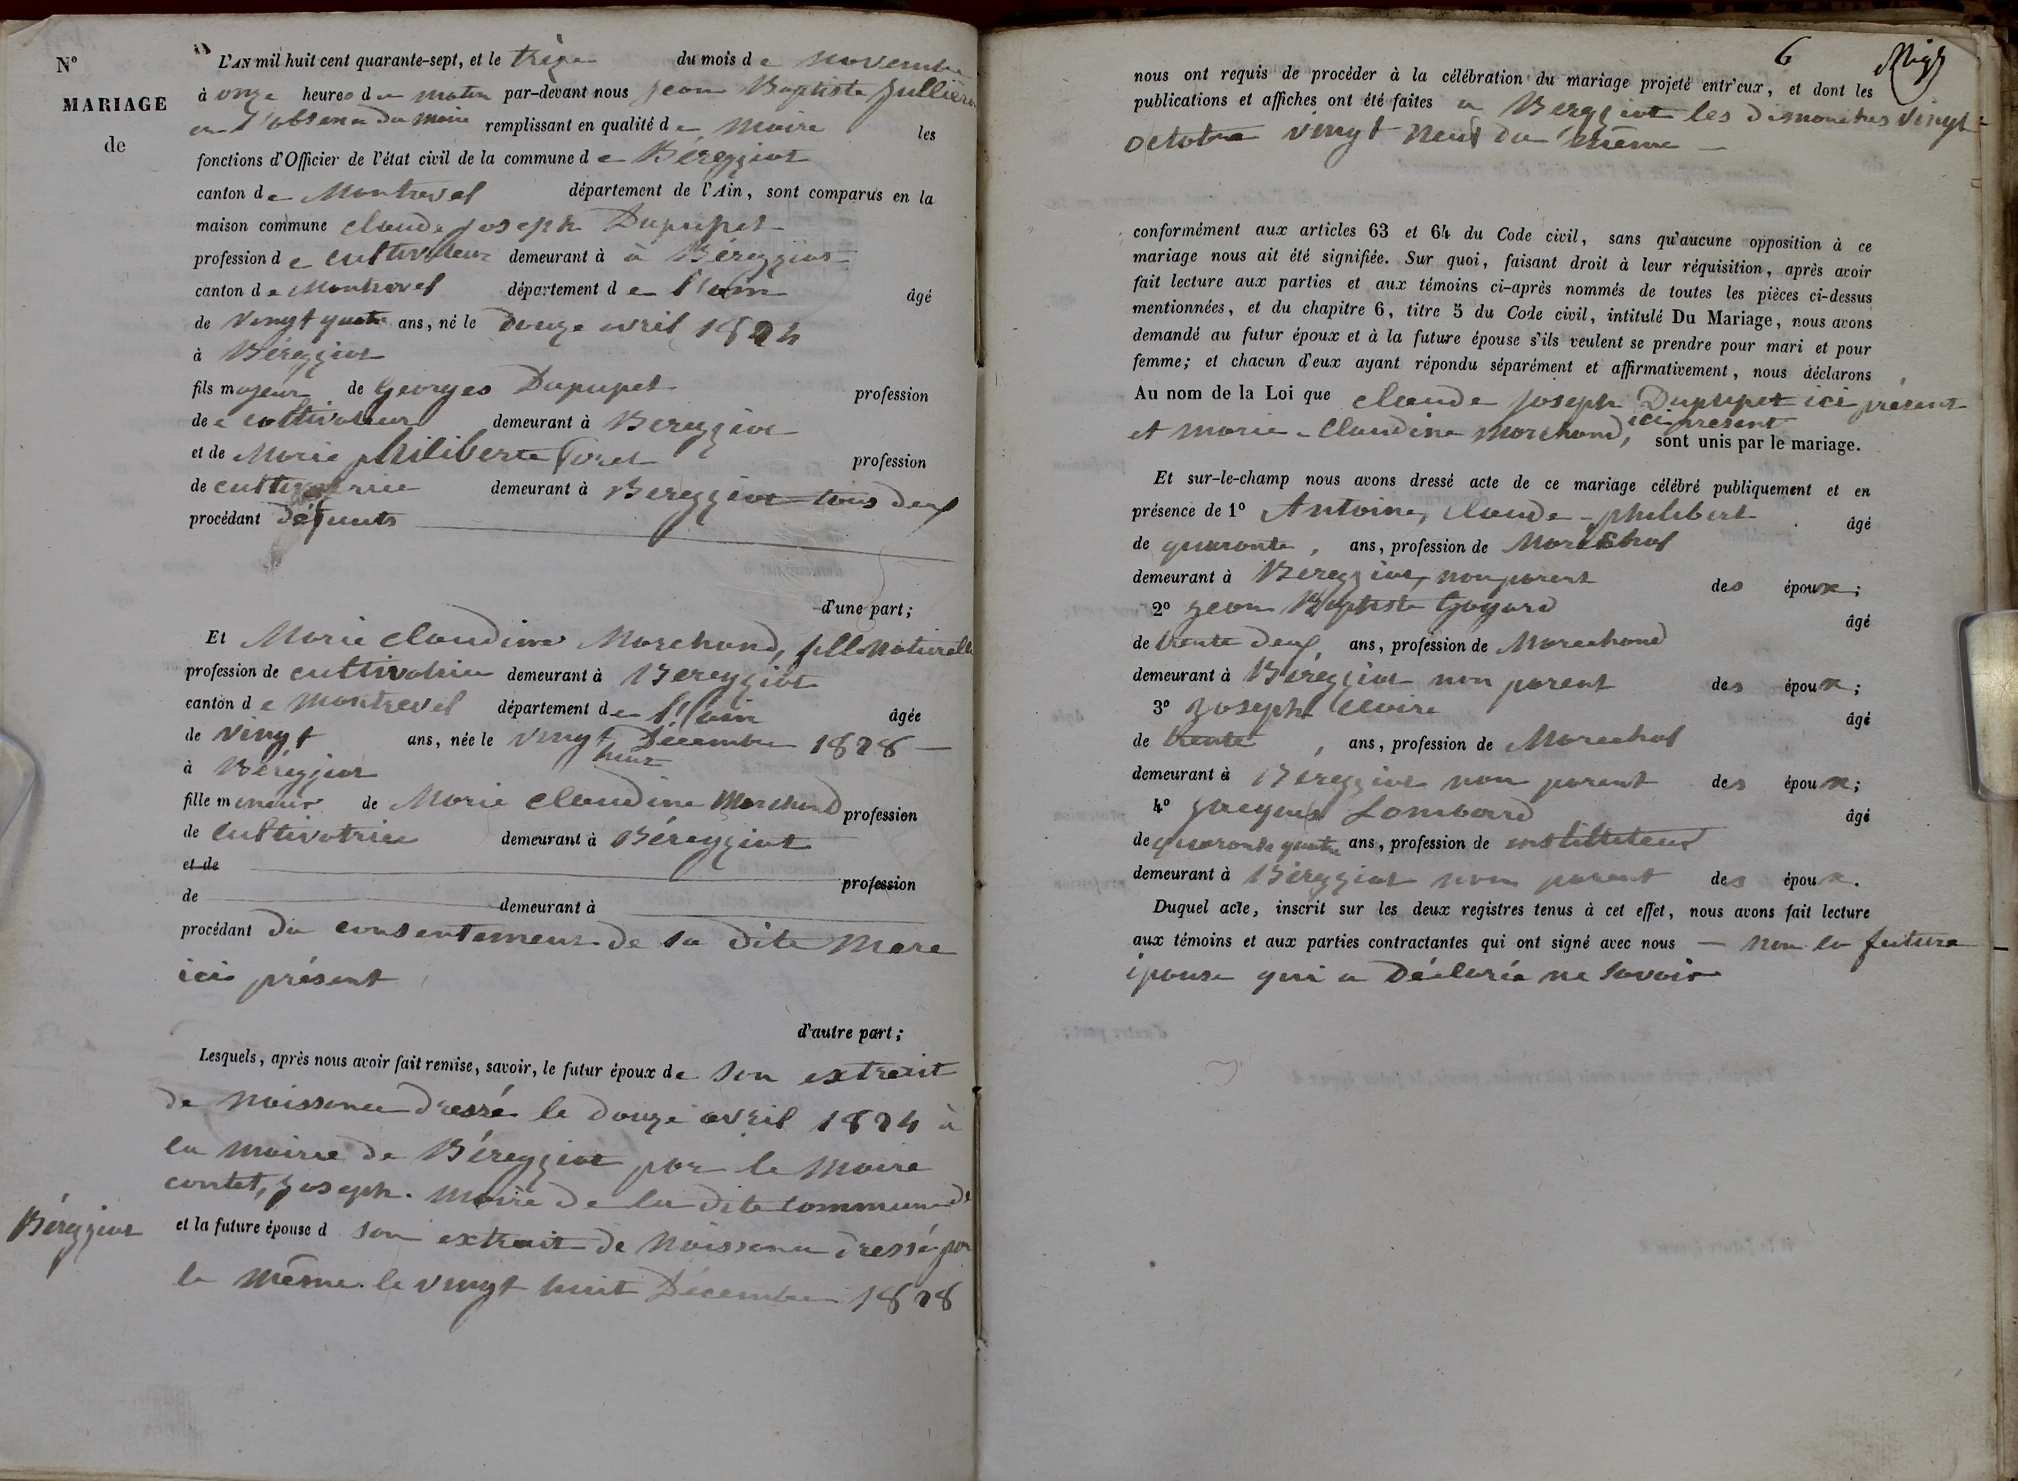 N° L'AN mil huit cent quarante-sept, et le treize du mois de novembre
MARIAGE à onze heures du matin par-devant nous jean Baptiste Jullien
de en l'absence du maire remplissant en qualité de maire les
fonctions d'Officier de l'état civil de la commune de Béreyziat
canton de Montrevel département de l'Ain, sont comparus en la
maison commune claude joseph Dupupet
profession de cultivateur demeurant à à Béreyziat
canton de Montrevel département de l'ain âgé
de vingt quatre ans, né le douze avril 1824
à Béreyziat
fils majeur de Georges Dupupet profession
de cultivateur demeurant à Bereyziat
et de Marie philiberte profession
de cultivatrice demeurant à Bereyziat tous deux
procédant défunts
d'une part;
Et Marie claudine Marchand, fille naturelle
profession de cultivatrice demeurant à Bereyziat
canton de Montrevel département de l'ain âgée
de vingt ans, née le vingt huit Décembre 1828
à Béreyziat
fille mineur de Marie claudine Marchand profession
de cultivatrice demeurant à Béreyziat
et de profession
de demeurant à
procédant du consentement de sa dite Mere
ici présent
d'autre part;
Lesquels, après nous avoir fait remise, savoir, le futur époux de son extrait
de naissance dressé le douze avril 1824 à
la mairie de Béreyziat par le Maire
contet, joseph. maire de la dite commune
Béreyziat et la future épouse d son extrait de naissance dressé par
le même le vingt huit Décembre 1828
6
nous ont requis de procéder à la célébration du mariage projeté entr'eux, et dont les
publications et affiches ont été faites a Bereyziat les dimanches vingt
octobre vingt neuf du même
conformément aux articles 63 et 64 du Code civil, sans qu'aucune opposition à ce
mariage nous ait été signifiée. Sur quoi, faisant droit à leur réquisition, après avoir
fait lecture aux parties et aux témoins ci-après nommés de toutes les pièces ci-dessus
mentionnées, et du chapitre 6, titre 5 du Code civil, intitulé Du Mariage, nous avons
demandé au futur époux et à la future épouse s'ils veulent se prendre pour mari et pour
femme; et chacun d'eux ayant répondu séparément et affirmativement, nous déclarons
Au nom de la Loi que claude joseph Dupupet ici présent
et marie-claudine marchand, ici présent sont unis par le mariage.
Et sur-le-champ nous avons dressé acte de ce mariage célébré publiquement et en
présence de 1° Antoine, claude-philibert âgé
de quarante, ans, profession de Maréchal
demeurant à Bereyziat, non parent des époux;
2° jean Baptiste Goyard âgé
de trente deux, ans, profession de Marechand
demeurant à Béreyziat non parent des époux;
3° joseph Claire âgé
de trente, ans, profession de Marechal
demeurant à Béreyziat non parent des époux;
4° jacques Lombard âgé
de quarante quatre ans, profession de instituteur
demeurant à Béreyziat non parent des époux.
Duquel acte, inscrit sur les deux registres tenus à cet effet, nous avons fait lecture
aux témoins et aux parties contractantes qui ont signé avec nous — non la future
épouse qui a Déclarée ne savoir